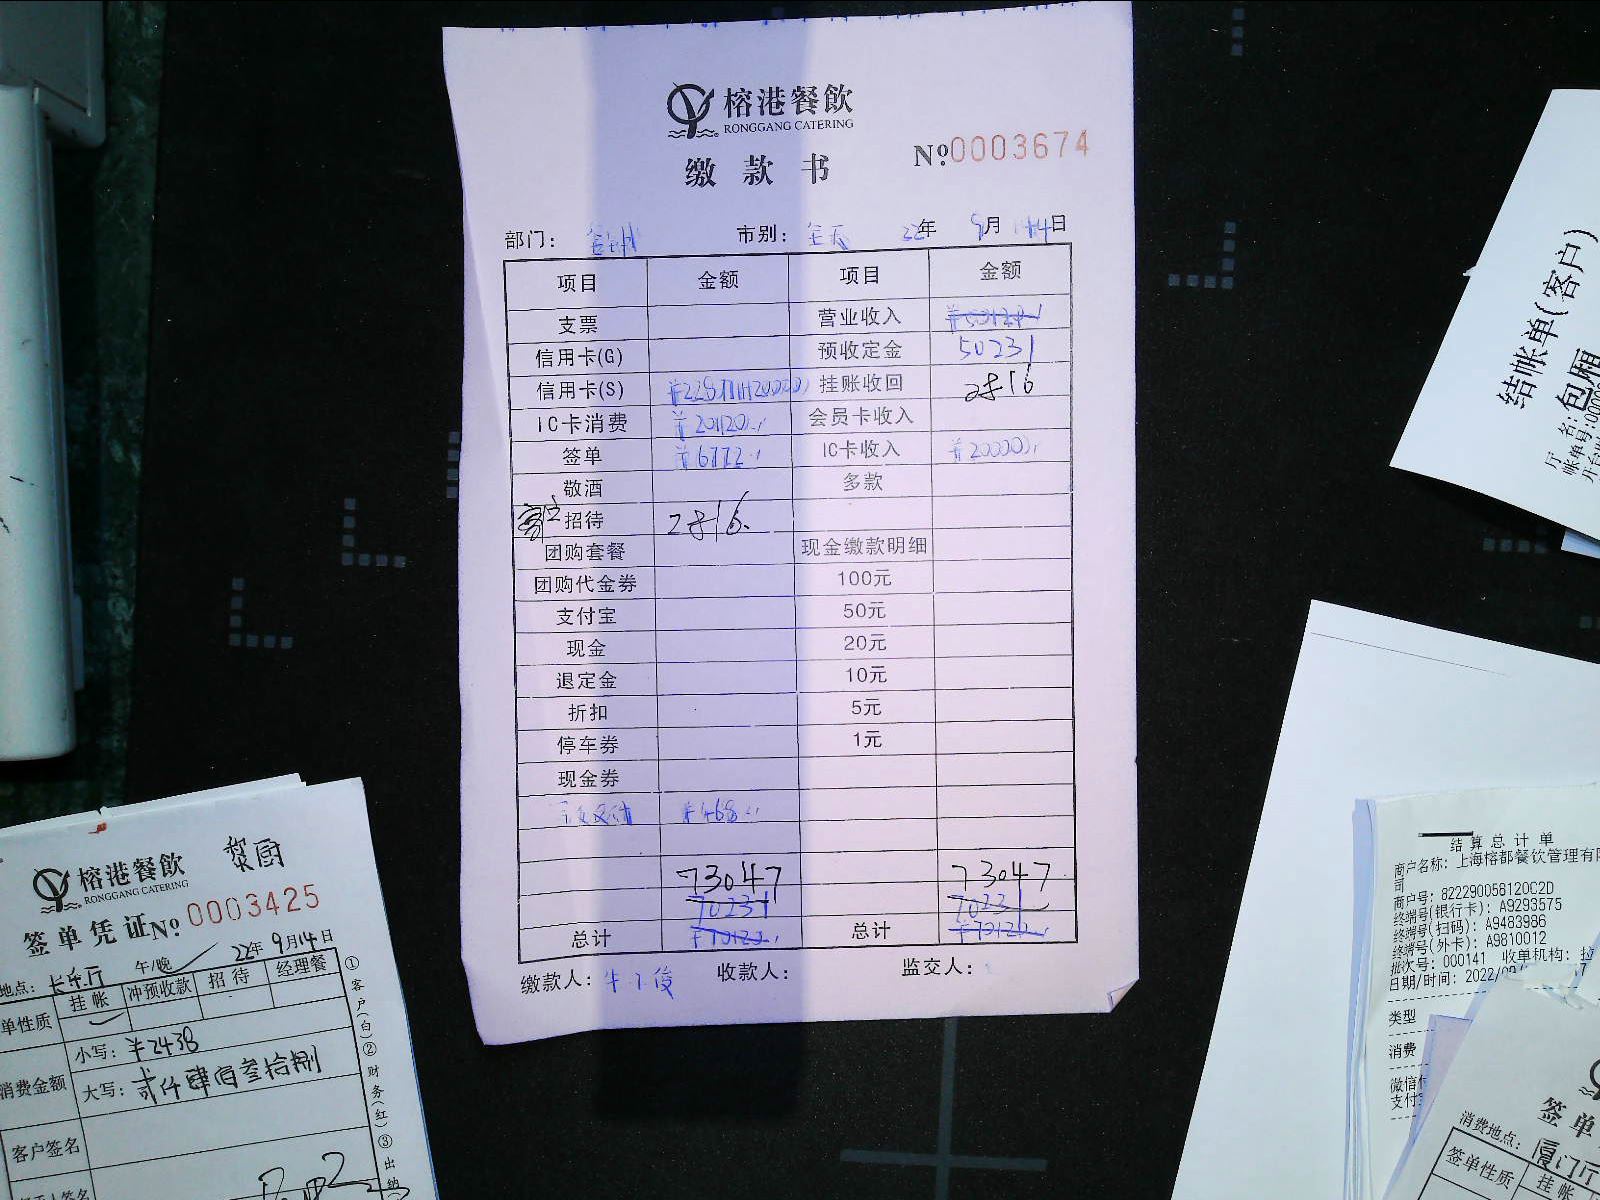 榕港餐飲
RONGGANG CATERING
缴款书
Nº0003674
部门：
市别：全天 22年 9月 14日
项目 金额 项目 金额
支票 营业收入
信用卡(G) 预收定金 50231
信用卡(S) 挂账收回 2816
IC卡消费 ¥20120 会员卡收入
签单 ¥6772 IC卡收入 ¥20000
敬酒 多款
招待 2816
团购套餐 现金缴款明细
团购代金券 100元
支付宝 50元
现金 20元
退定金 10元
折扣 5元
停车券 1元
现金券
¥468
73047 73047
70231 70231
总计 ¥70122 总计 ¥70122
缴款人： 收款人： 监交人：
榕港餐飲
RONGGANG CATERING
签单凭证Nº0003425
22年9月14日
地点：长乐厅 午/晚
单性质 挂帐 冲预收款 招待 经理餐
消费金额 小写：¥2438
大写：贰仟肆佰叁拾捌
客户签名
①客户(白)②财务(红)③出纳
结帐单(客户)
厅名:包厢
帐单号:0000
结算总计单
商户名称: 上海榕都餐饮管理有限
司
商户号: 822290056120C2D
终端号(银行卡): A9293575
终端号(扫码): A9483986
终端号(外卡): A9810012
批次号: 000141 收单机构: 拉
日期/时间: 2022/09
类型
消费
微信
支付
签单
消费地点：厦门厅
签单性质 挂帐